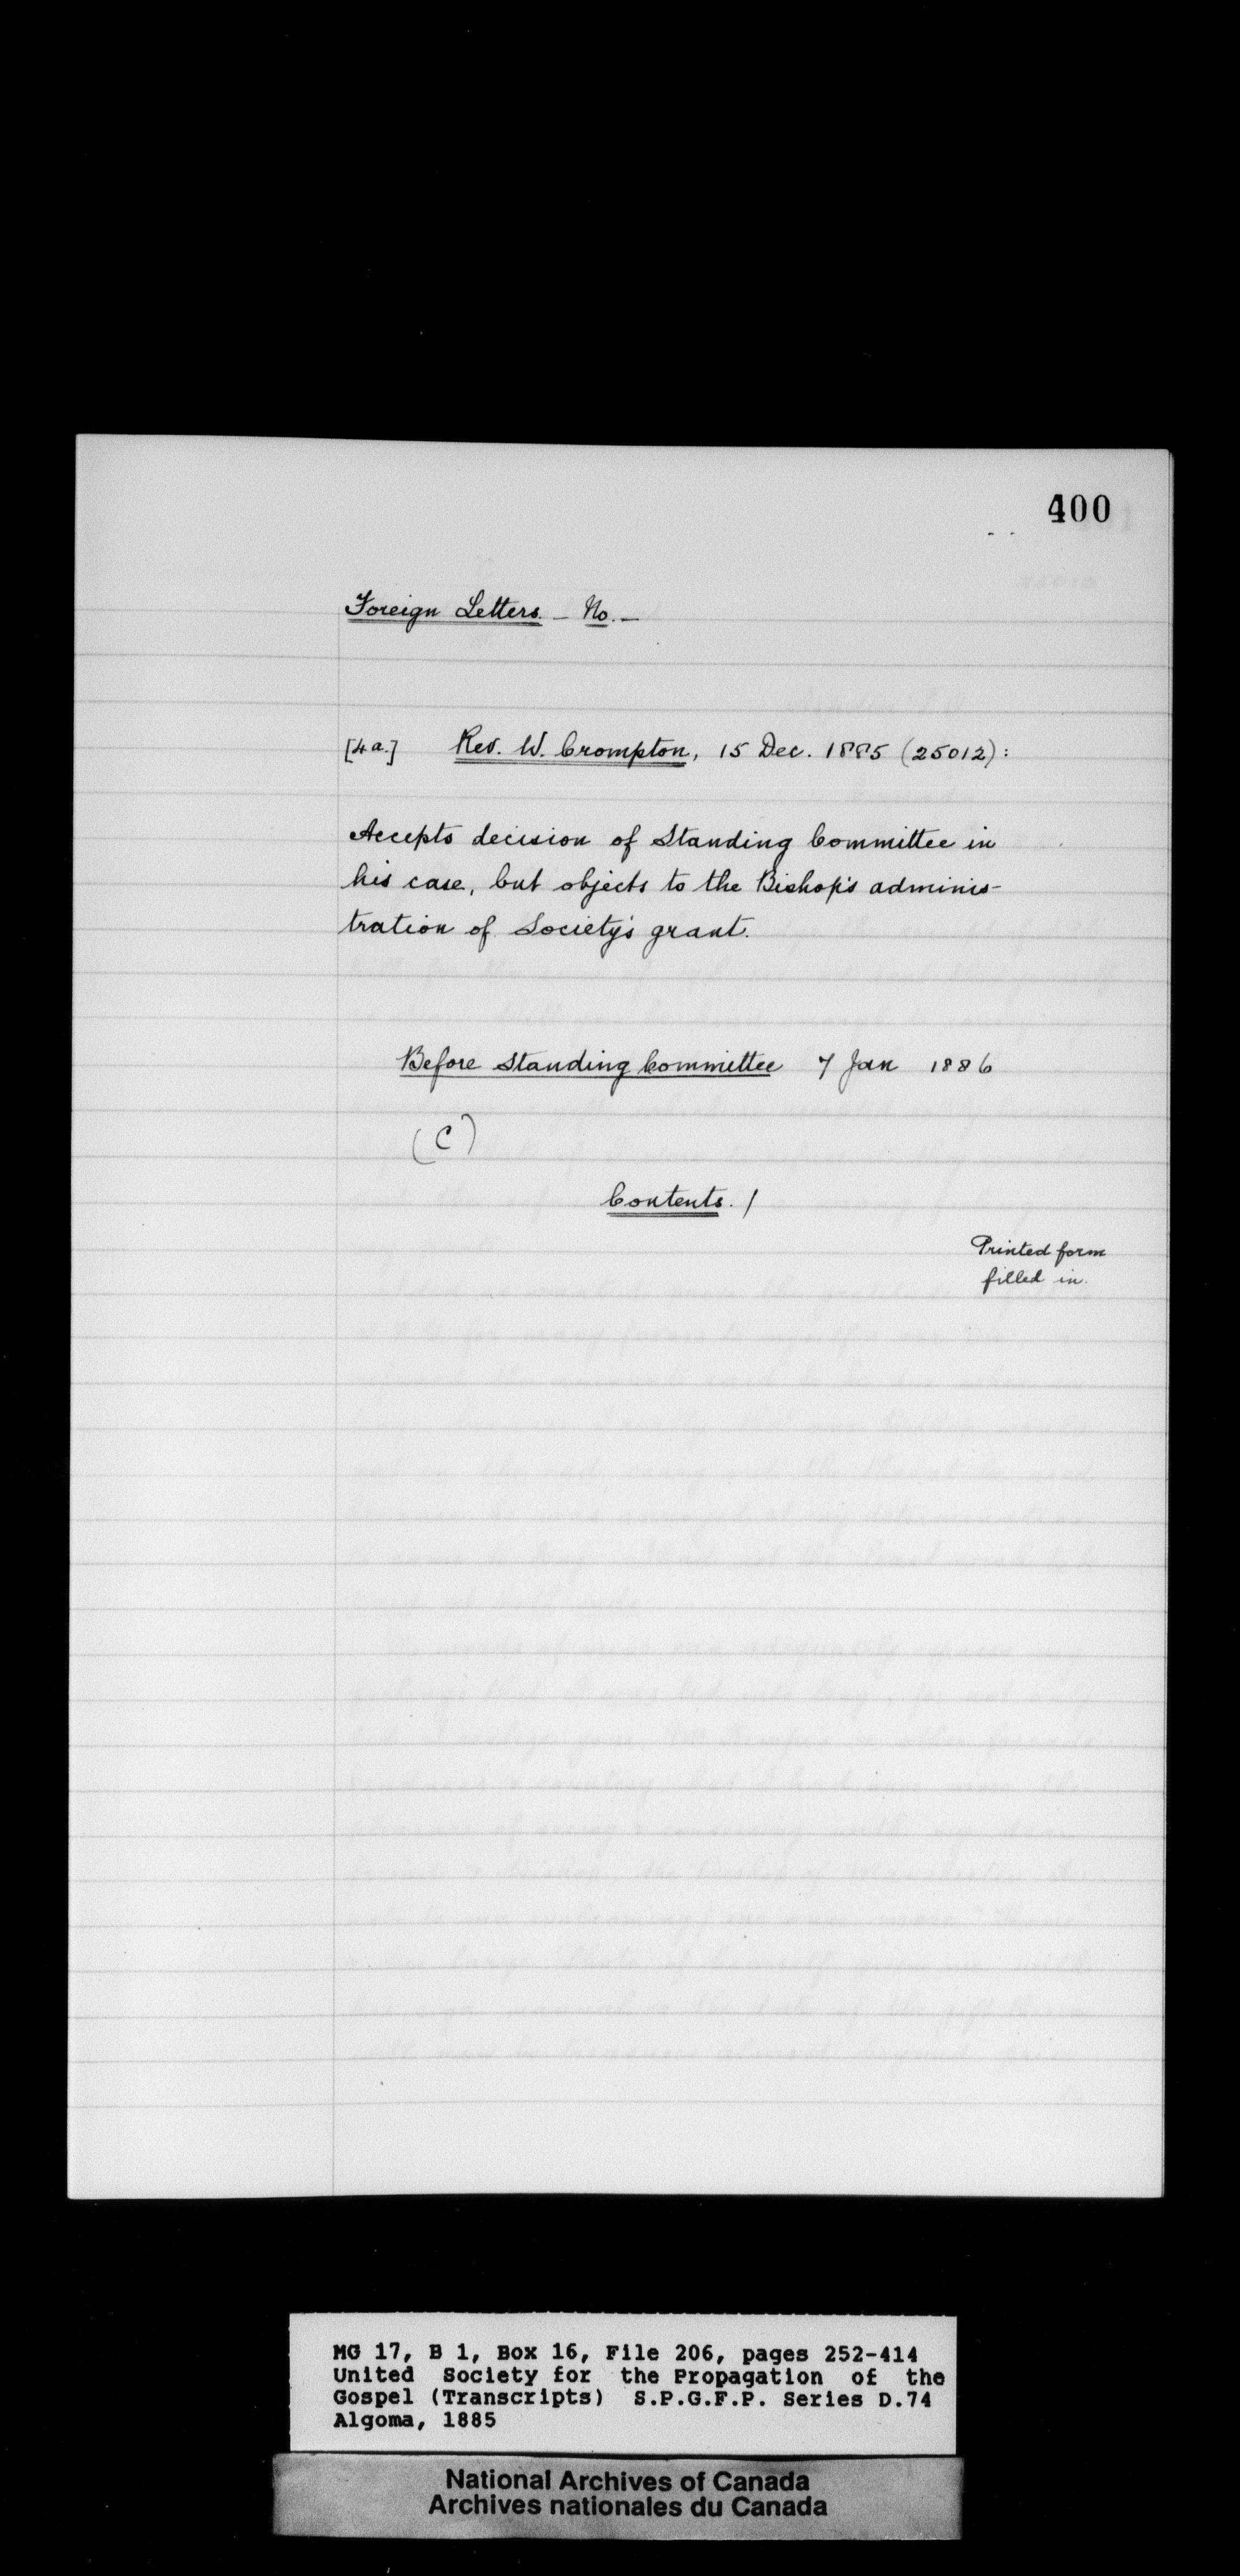 400
Foreign Letters. – No. –
[4a.] Rev. W. Crompton, 15 Dec. 1885 (25012):
Accepts decision of Standing Committee in
his case, but objects to the Bishop's adminis-
tration of Society's grant.
Before Standing Committee 7 Jan 1886
(C)
Contents. /
Printed form
filled in.
MG 17, B 1, Box 16, File 206, pages 252-414
United Society for the Propagation of the
Gospel (Transcripts) S.P.G.F.P. Series D.74
Algoma, 1885
National Archives of Canada
Archives nationales du Canada